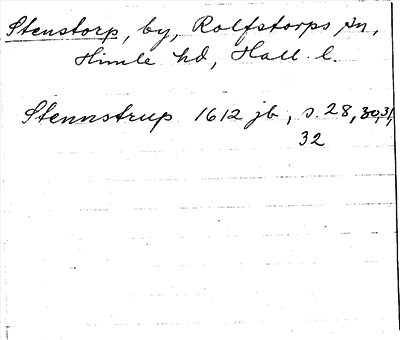 Stenstorp, by, Rolfstorps sn,
Himle hd, Hall. l.
Stennstrup 1612 jb, s. 28, 30, 31,
32